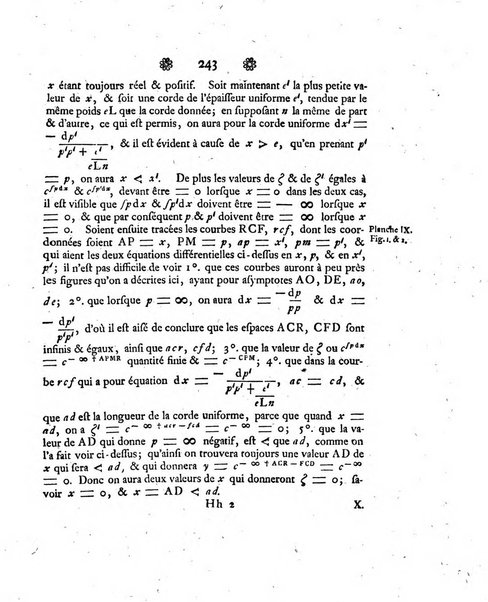 243
x étant toujours réel & positif. Soit maintenant e' la plus petite va-
leur de x, & soit une corde de l'épaisseur uniforme e', tendue par le
même poids eL que la corde donnée; en supposant n la même de part
& d'autre, ce qui est permis, on aura pour la corde uniforme dx' =
— dp' / (p'p' + e'/eLn), & il est évident à cause de x > e, qu'en prenant p'
= p, on aura x < x'. De plus les valeurs de ζ & de ζ' égales à
c^{∫pdx} & c^{∫p'dx}, devant être = 0 lorsque x = 0 dans les deux cas,
il est visible que ∫pdx & ∫p'dx doivent être = — ∞ lorsque x
= 0, & que par conséquent p & p' doivent être = ∞ lorsque x
= 0. Soient ensuite tracées les courbes RCF, rcf, dont les coor-
Planche IX.
Fig. 1. & 2.
données soient AP = x, PM = p, ap = x', pm = p', &
qui aient les deux équations différentielles ci-dessus en x, p, & en x',
p'; il n'est pas difficile de voir 1°. que ces courbes auront à peu près
les figures qu'on a décrites ici, ayant pour asymptotes AO, DE, ao,
de; 2°. que lorsque p = ∞, on aura dx = — dp / pp & dx =
— dp' / p'p', d'où il est aisé de conclure que les espaces ACR, CFD sont
infinis & égaux, ainsi que acr, cfd; 3°. que la valeur de ζ ou c^{∫pdx}
= c^{— ∞ † APMR} quantité finie & = c^{— CFM}; 4°. que dans la cour-
be rcf qui a pour équation dx = — dp' / (p'p' + e'/eLn), ac = cd, &
que ad est la longueur de la corde uniforme, parce que quand x =
ad, on a ζ' = c^{— ∞ † acr — fcd} = c^{— ∞} = 0; 5°. que la va-
leur de AD qui donne p = ∞ négatif, est < que ad, comme on
l'a fait voir ci-dessus; qu'ainsi on trouvera toujours une valeur AD de
x qui sera < ad, & qui donnera y = c^{— ∞ † ACR — FCD} = c^{— ∞}
= 0. Donc on aura deux valeurs de x qui donneront ζ = 0; sa-
voir x = 0, & x = AD < ad.
Hh 2 X.